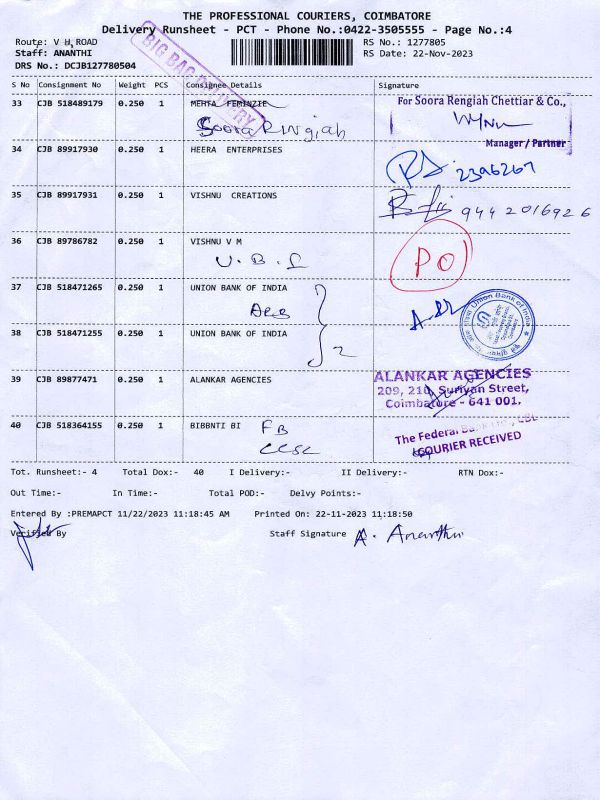 THE PROFESSIONAL COURIERS, COIMBATORE
Delivery Runsheet - PCT - Phone No.:0422-3505555 - Page No.:4
Route: V H ROAD
RS No.: 1277805
Staff: ANANTHI
RS Date: 22-Nov-2023
DRS No.: DCJB127780504
BIG BAG DELIVERY
S No Consignment No Weight PCS Consignee Details Signature
33 CJB 518489179 0.250 1 MEHTA FEMINZIE
Soora Rengiah
For Soora Rengiah Chettiar & Co.,
Manager / Partner
34 CJB 89917930 0.250 1 HEERA ENTERPRISES
2396267
35 CJB 89917931 0.250 1 VISHNU CREATIONS
9442016926
36 CJB 89786782 0.250 1 VISHNU V M
U.B.I
PO
37 CJB 518471265 0.250 1 UNION BANK OF INDIA
Union Bank of India
38 CJB 518471255 0.250 1 UNION BANK OF INDIA
2
39 CJB 89877471 0.250 1 ALANKAR AGENCIES
ALANKAR AGENCIES
209, 210, Suriyan Street,
Coimbatore - 641 001.
40 CJB 518364155 0.250 1 BIBBNTI BI
FB
The Federal Bank
COURIER RECEIVED
Tot. Runsheet:- 4 Total Dox:- 40 I Delivery:- II Delivery:- RTN Dox:-
Out Time:- In Time:- Total POD:- Delvy Points:-
Entered By :PREMAPCT 11/22/2023 11:18:45 AM Printed On: 22-11-2023 11:18:50
Verified By
Staff Signature A. Ananthi